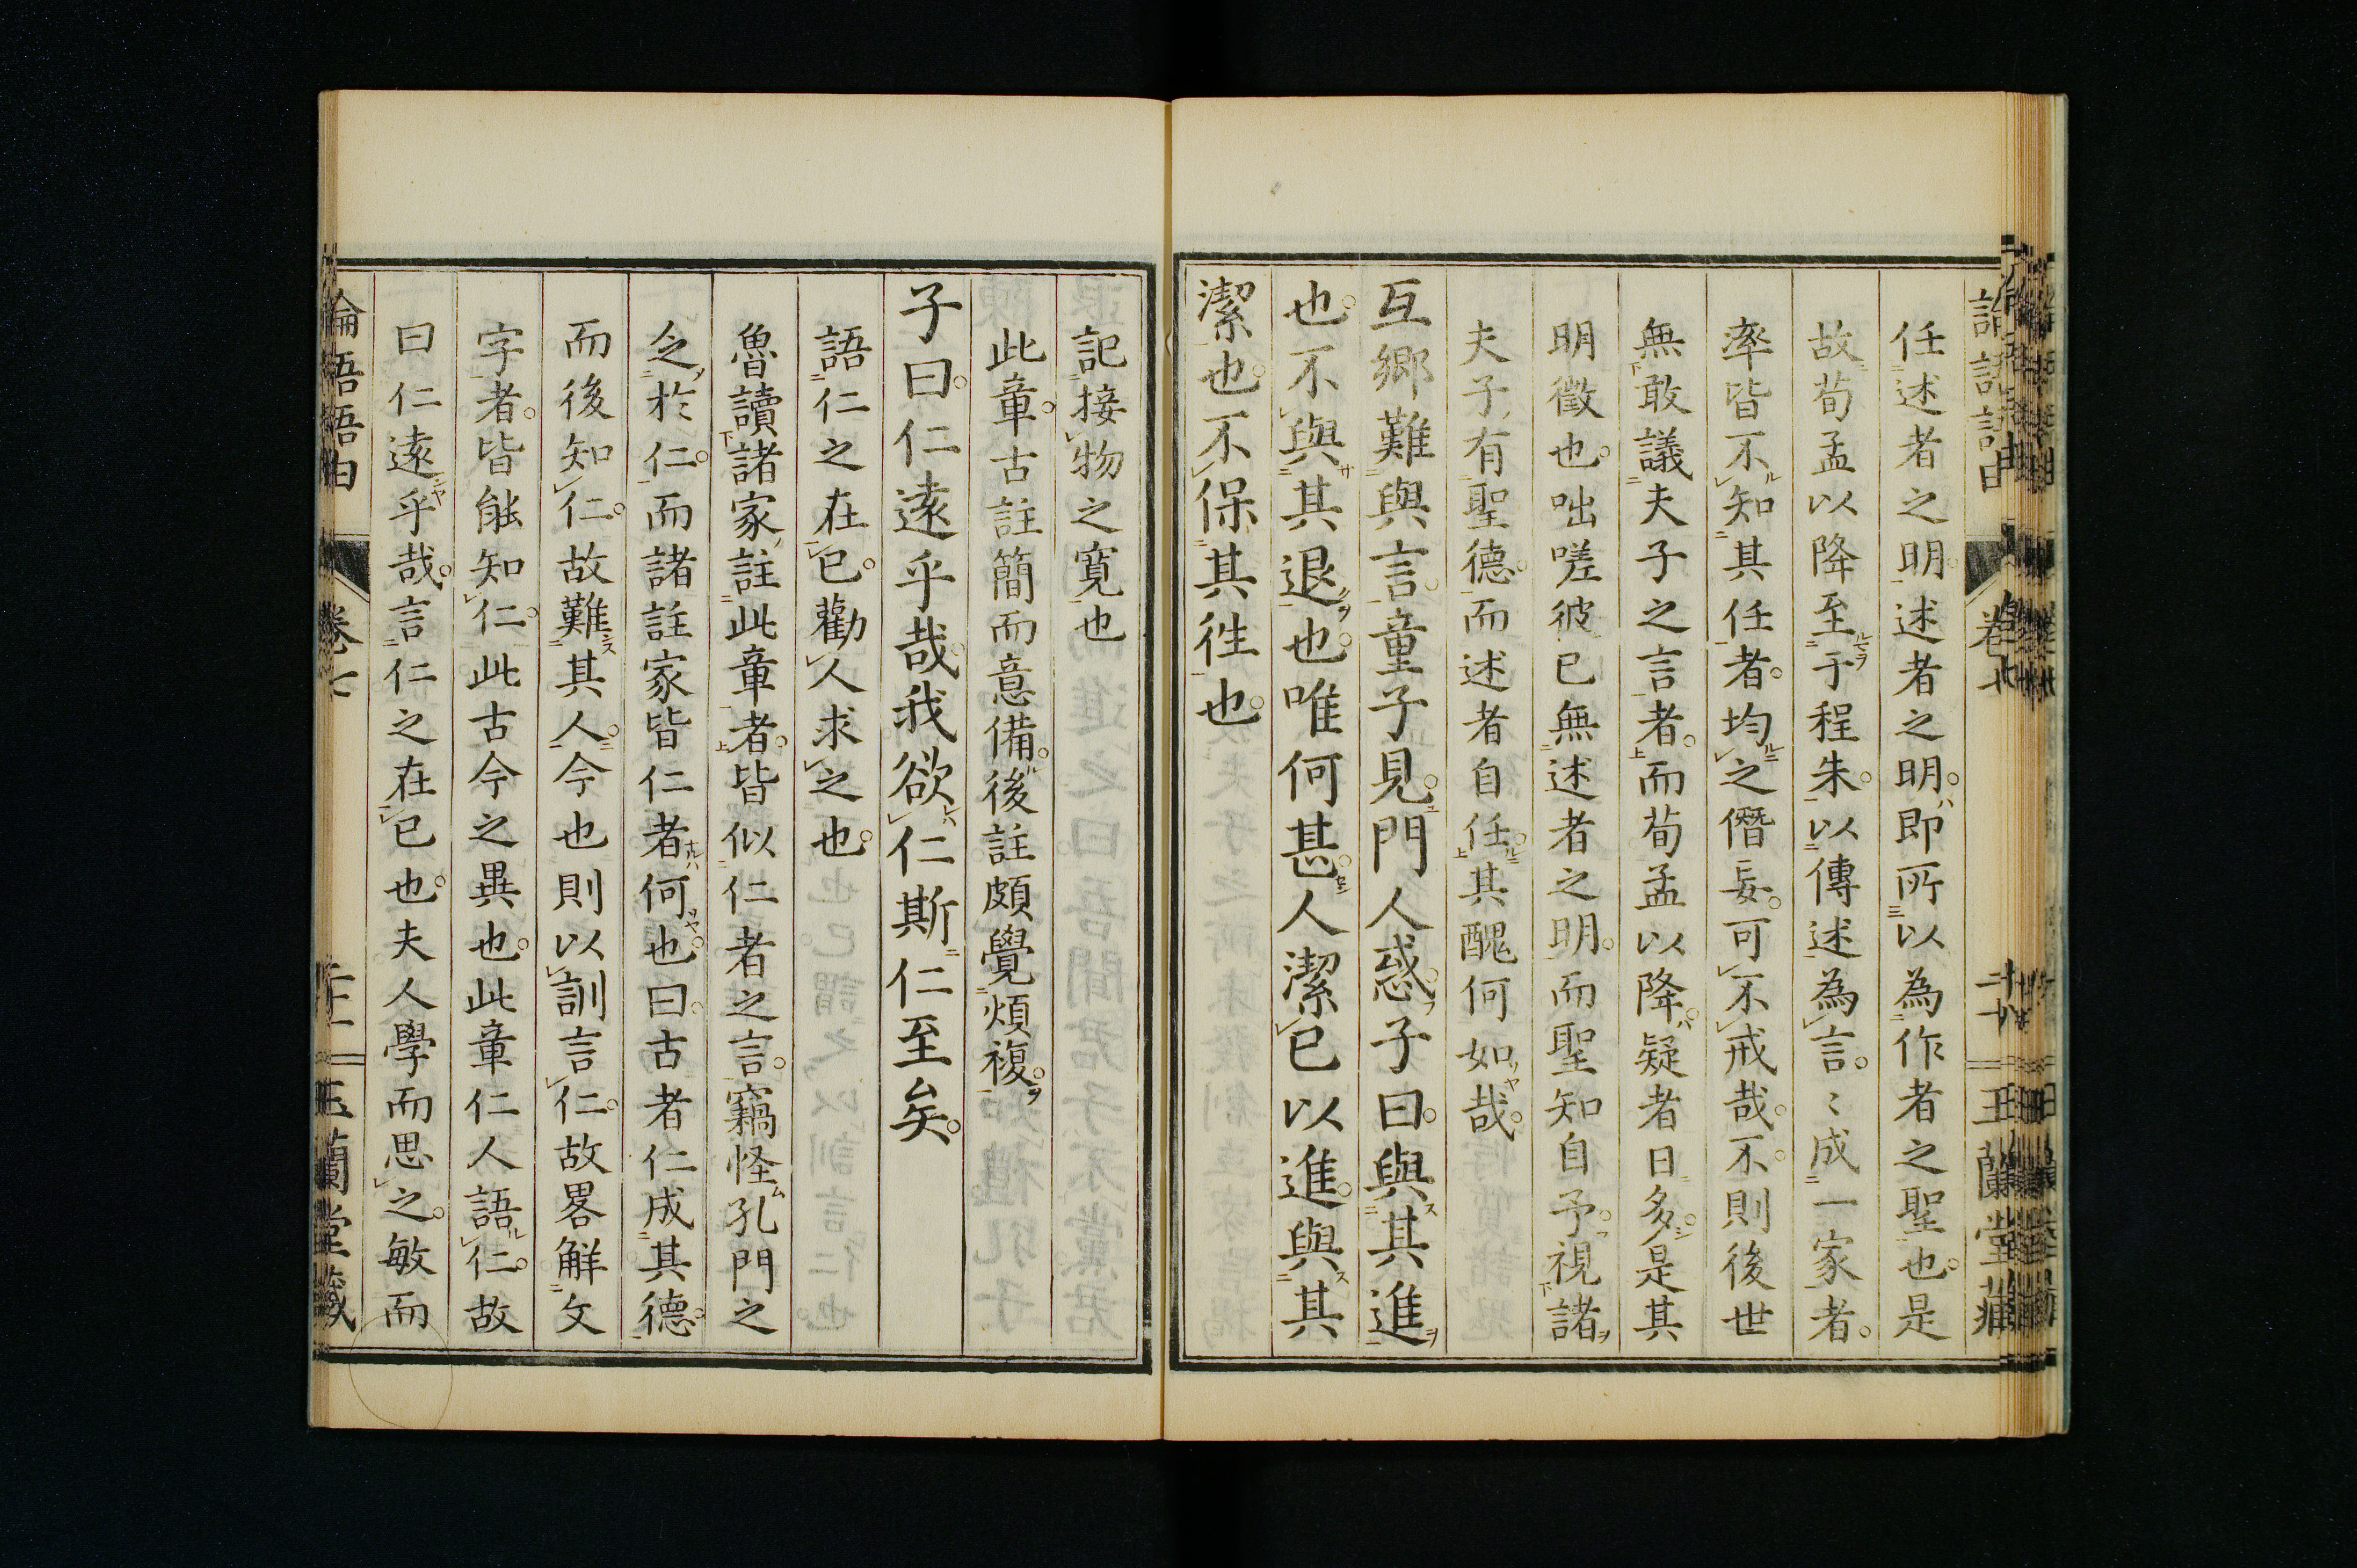 任述者之明述者之明即所以為作者之聖也是
故荀孟以降至于程朱以傳述為言〻成一家者
率皆不知其任者均之僭妄可不戒哉不則後世
無敢議夫子之言者而荀孟以降疑者日多是其
明徵也咄嗟彼已無述者之明而聖知自予視諸
夫子有聖德而述者自任其醜何如哉
互鄉難與言童子見門人惑子曰與其進
也不與其退也唯何甚人潔已以進與其
潔也不保其徃也
記接物之寬也
此章古註簡而意備後註頗覺煩複
子曰仁遠乎哉我欲仁斯仁至矣
語仁之在已勸人求之也
魯讀諸家註此章者皆似仁者之言竊怪孔門之
之於仁而諸註家皆仁者何也曰古者仁成其德
而後知仁故難其人今也則以訓言仁故畧解文
字者皆能知仁此古今之異也此章仁人語仁故
曰仁遠乎哉言仁之在已也夫人學而思之敏而
論語語由 卷七 玉蘭堂藏